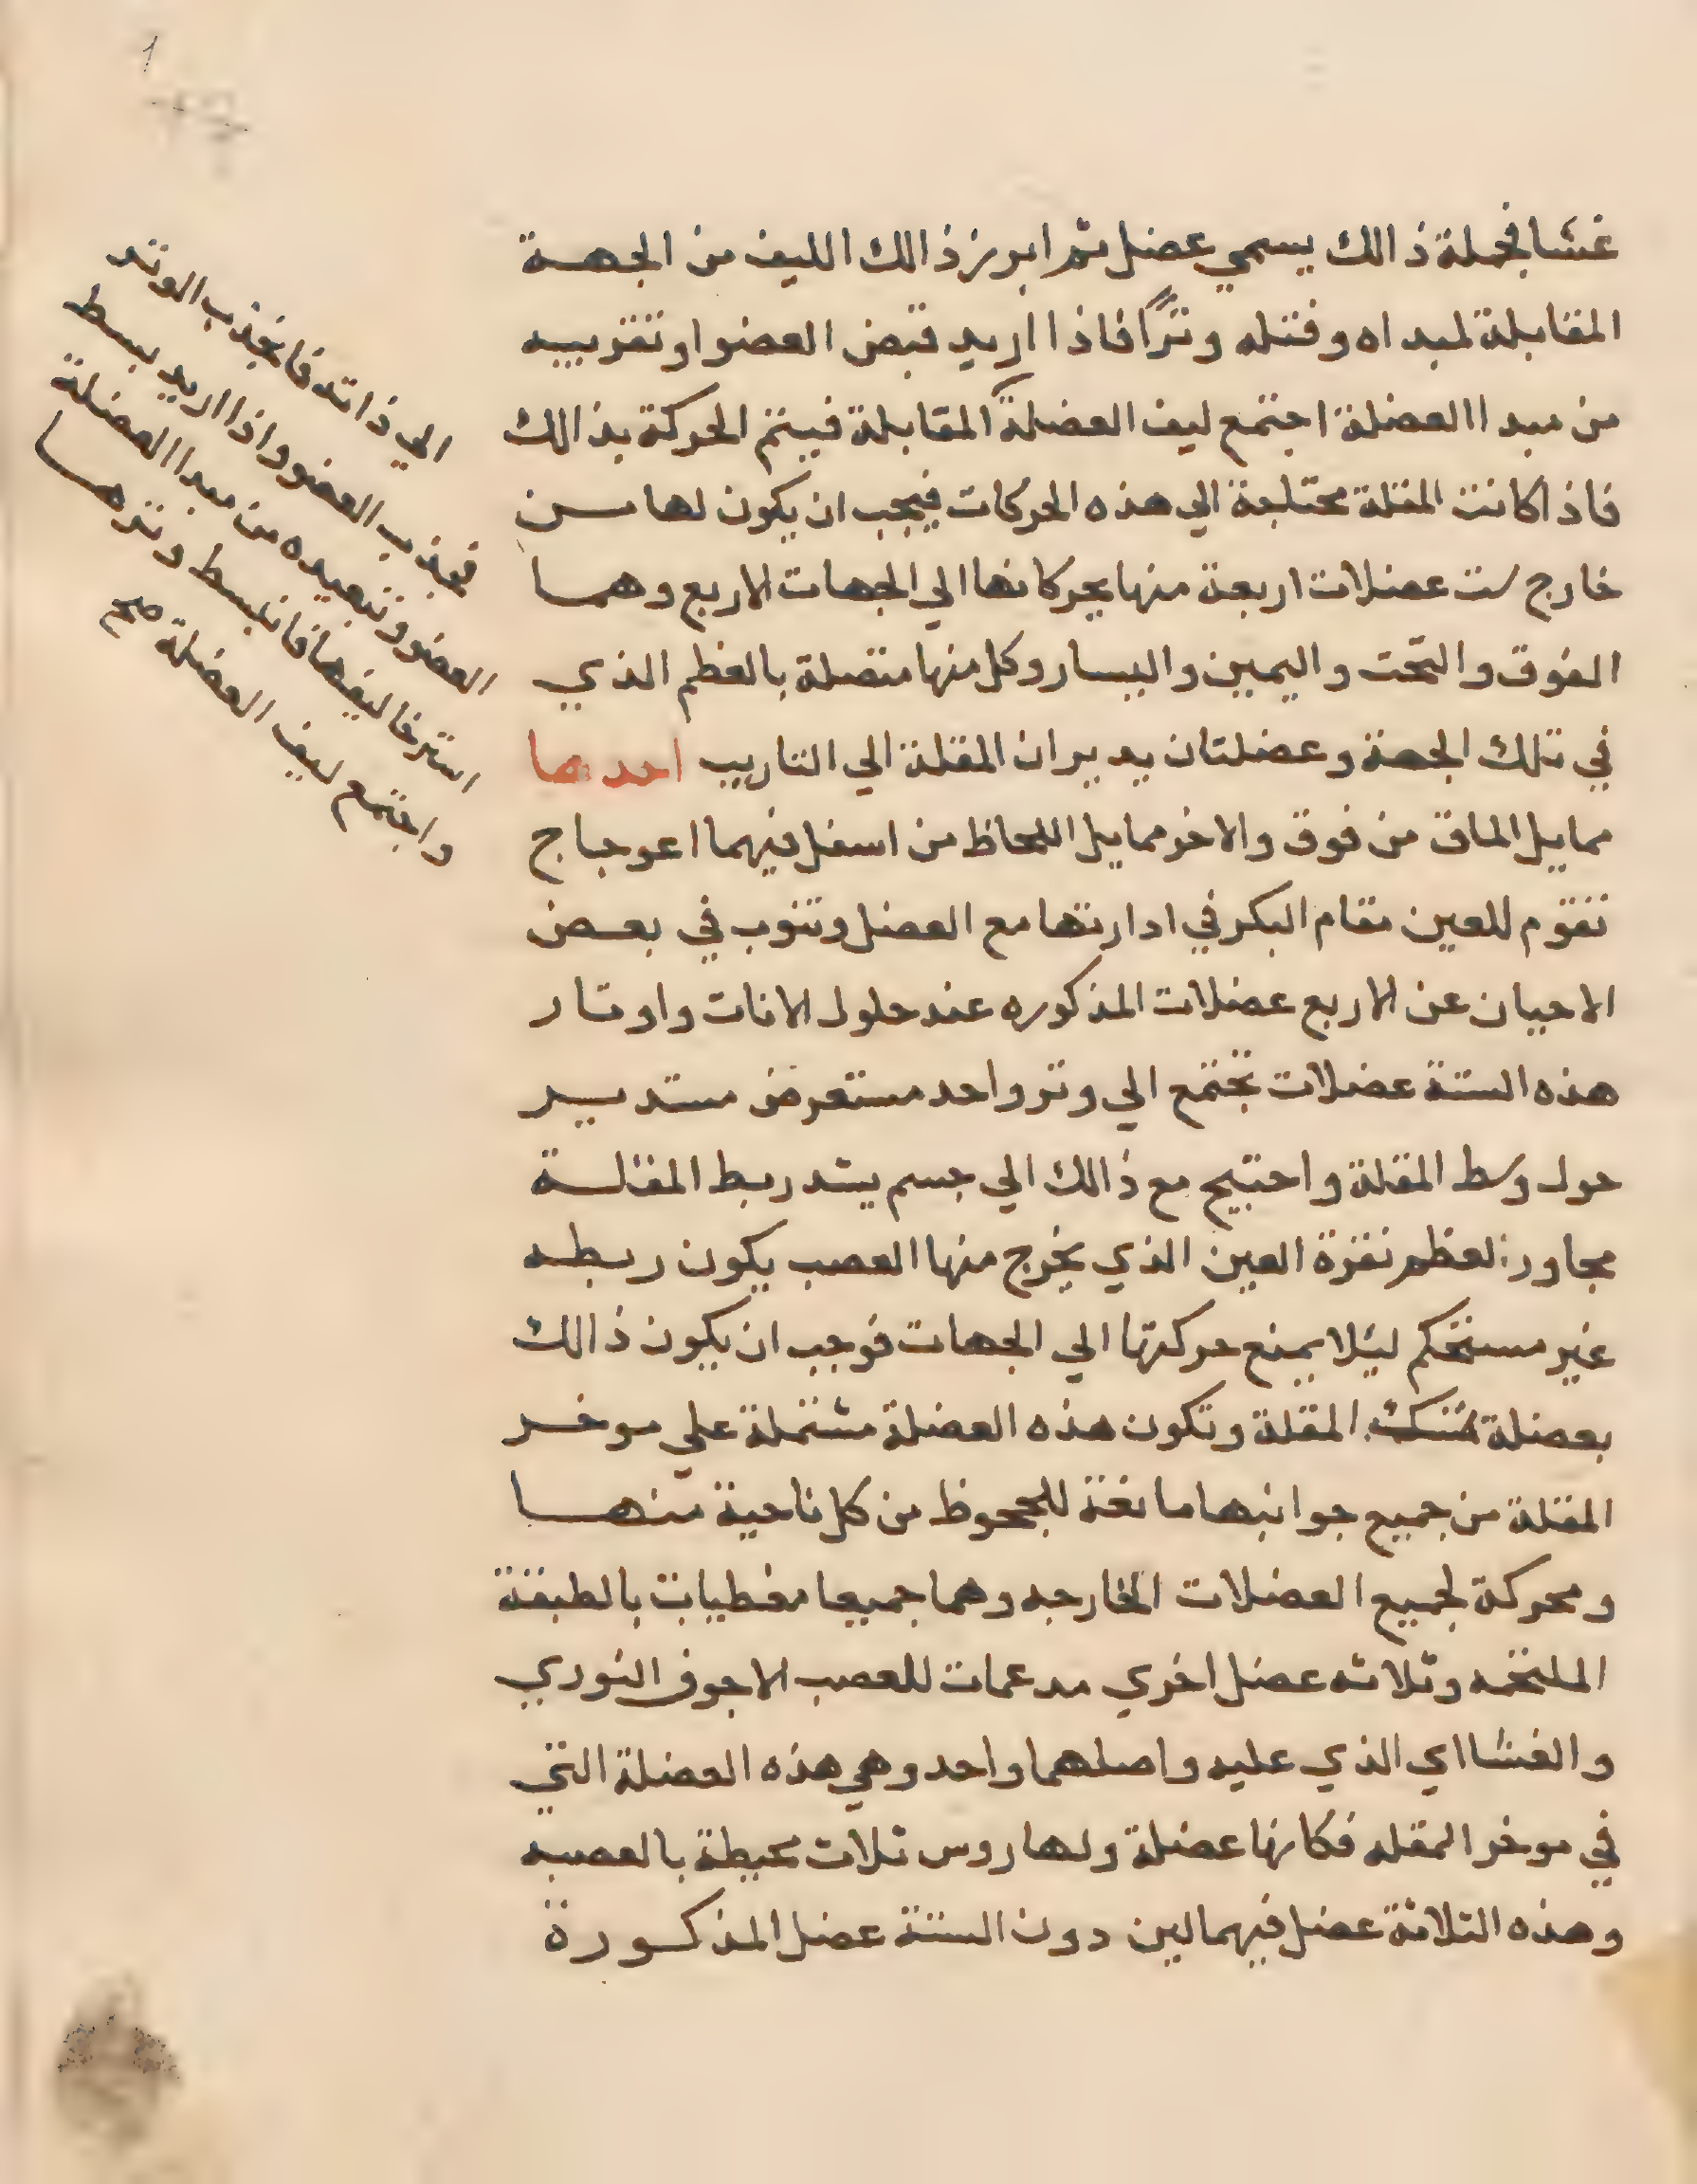 غشا فجملة ذالك يسمي عضل ثم ابرز ذالك الليف من الجهة
المقابلة لمبداه وفتله وترًا فاذا اريد قبض العضو او تقريبه
من مبدا العضلة اجتمع ليف العضلة المقابلة فيتم الحركة بذالك
فاذا كانت المقلة محتاجة الي هذه الحركات فيجب ان يكون لها من
خارج ست عضلات اربعة منها يحركانها الي الجهات الاربع وهما
الفوق والتحت واليمين واليسار وكل منها متصلة بالعظم الذي
في تلك الجهة وعضلتان يديران المقلة الي التاريب احدهما
مما يلي الماق من فوق والاخر مما يلي اللحاظ من اسفل فيهما اعوجاج
تقوم للعين مقام البكر في ادارتها مع العضل وتنوب في بعض
الاحيان عن الاربع عضلات المذكوره عند حلول الافات واوتار
هذه الستة عضلات تجتمع الي وتر واحد مستعرض مستدير
حول وسط المقلة واحتيج مع ذالك الي جسم يشد ربط المقلة
مجاور لعظم نقرة العين الذي يخرج منها العصب يكون ربطه
غير مستحكم ليلا يمنع حركتها الي الجهات فوجب ان يكون ذالك
بعضلة المقلة وتكون هذه العضلة مشتملة علي موخر
المقلة من جميع جوانبها مانعة للجحوظ من كل ناحية منها
ومحركة لجميع العضلات الخارجه وهما جميعا مغطيات بالطبقة
الملتحمه وثلاثه عضل اخري مدعمات للعصب الاجوف النوري
والغشا اي الذي عليه واصلهما واحد وهي هذه العضلة التي
في موخر المقله فكانها عضلة ولها روس ثلاث محيطة بالعصبه
وهذه الثلاثة عضل فيهما لين دون الستة عضل المذكورة
الي ذاته فانجذب الوتر
فيجذب العضو واذا اريد بسط
العضو وتبعيده من مبدا العضلة
استرخا ليفها فانبسط وترها
واجتمع ليف العضلة صح